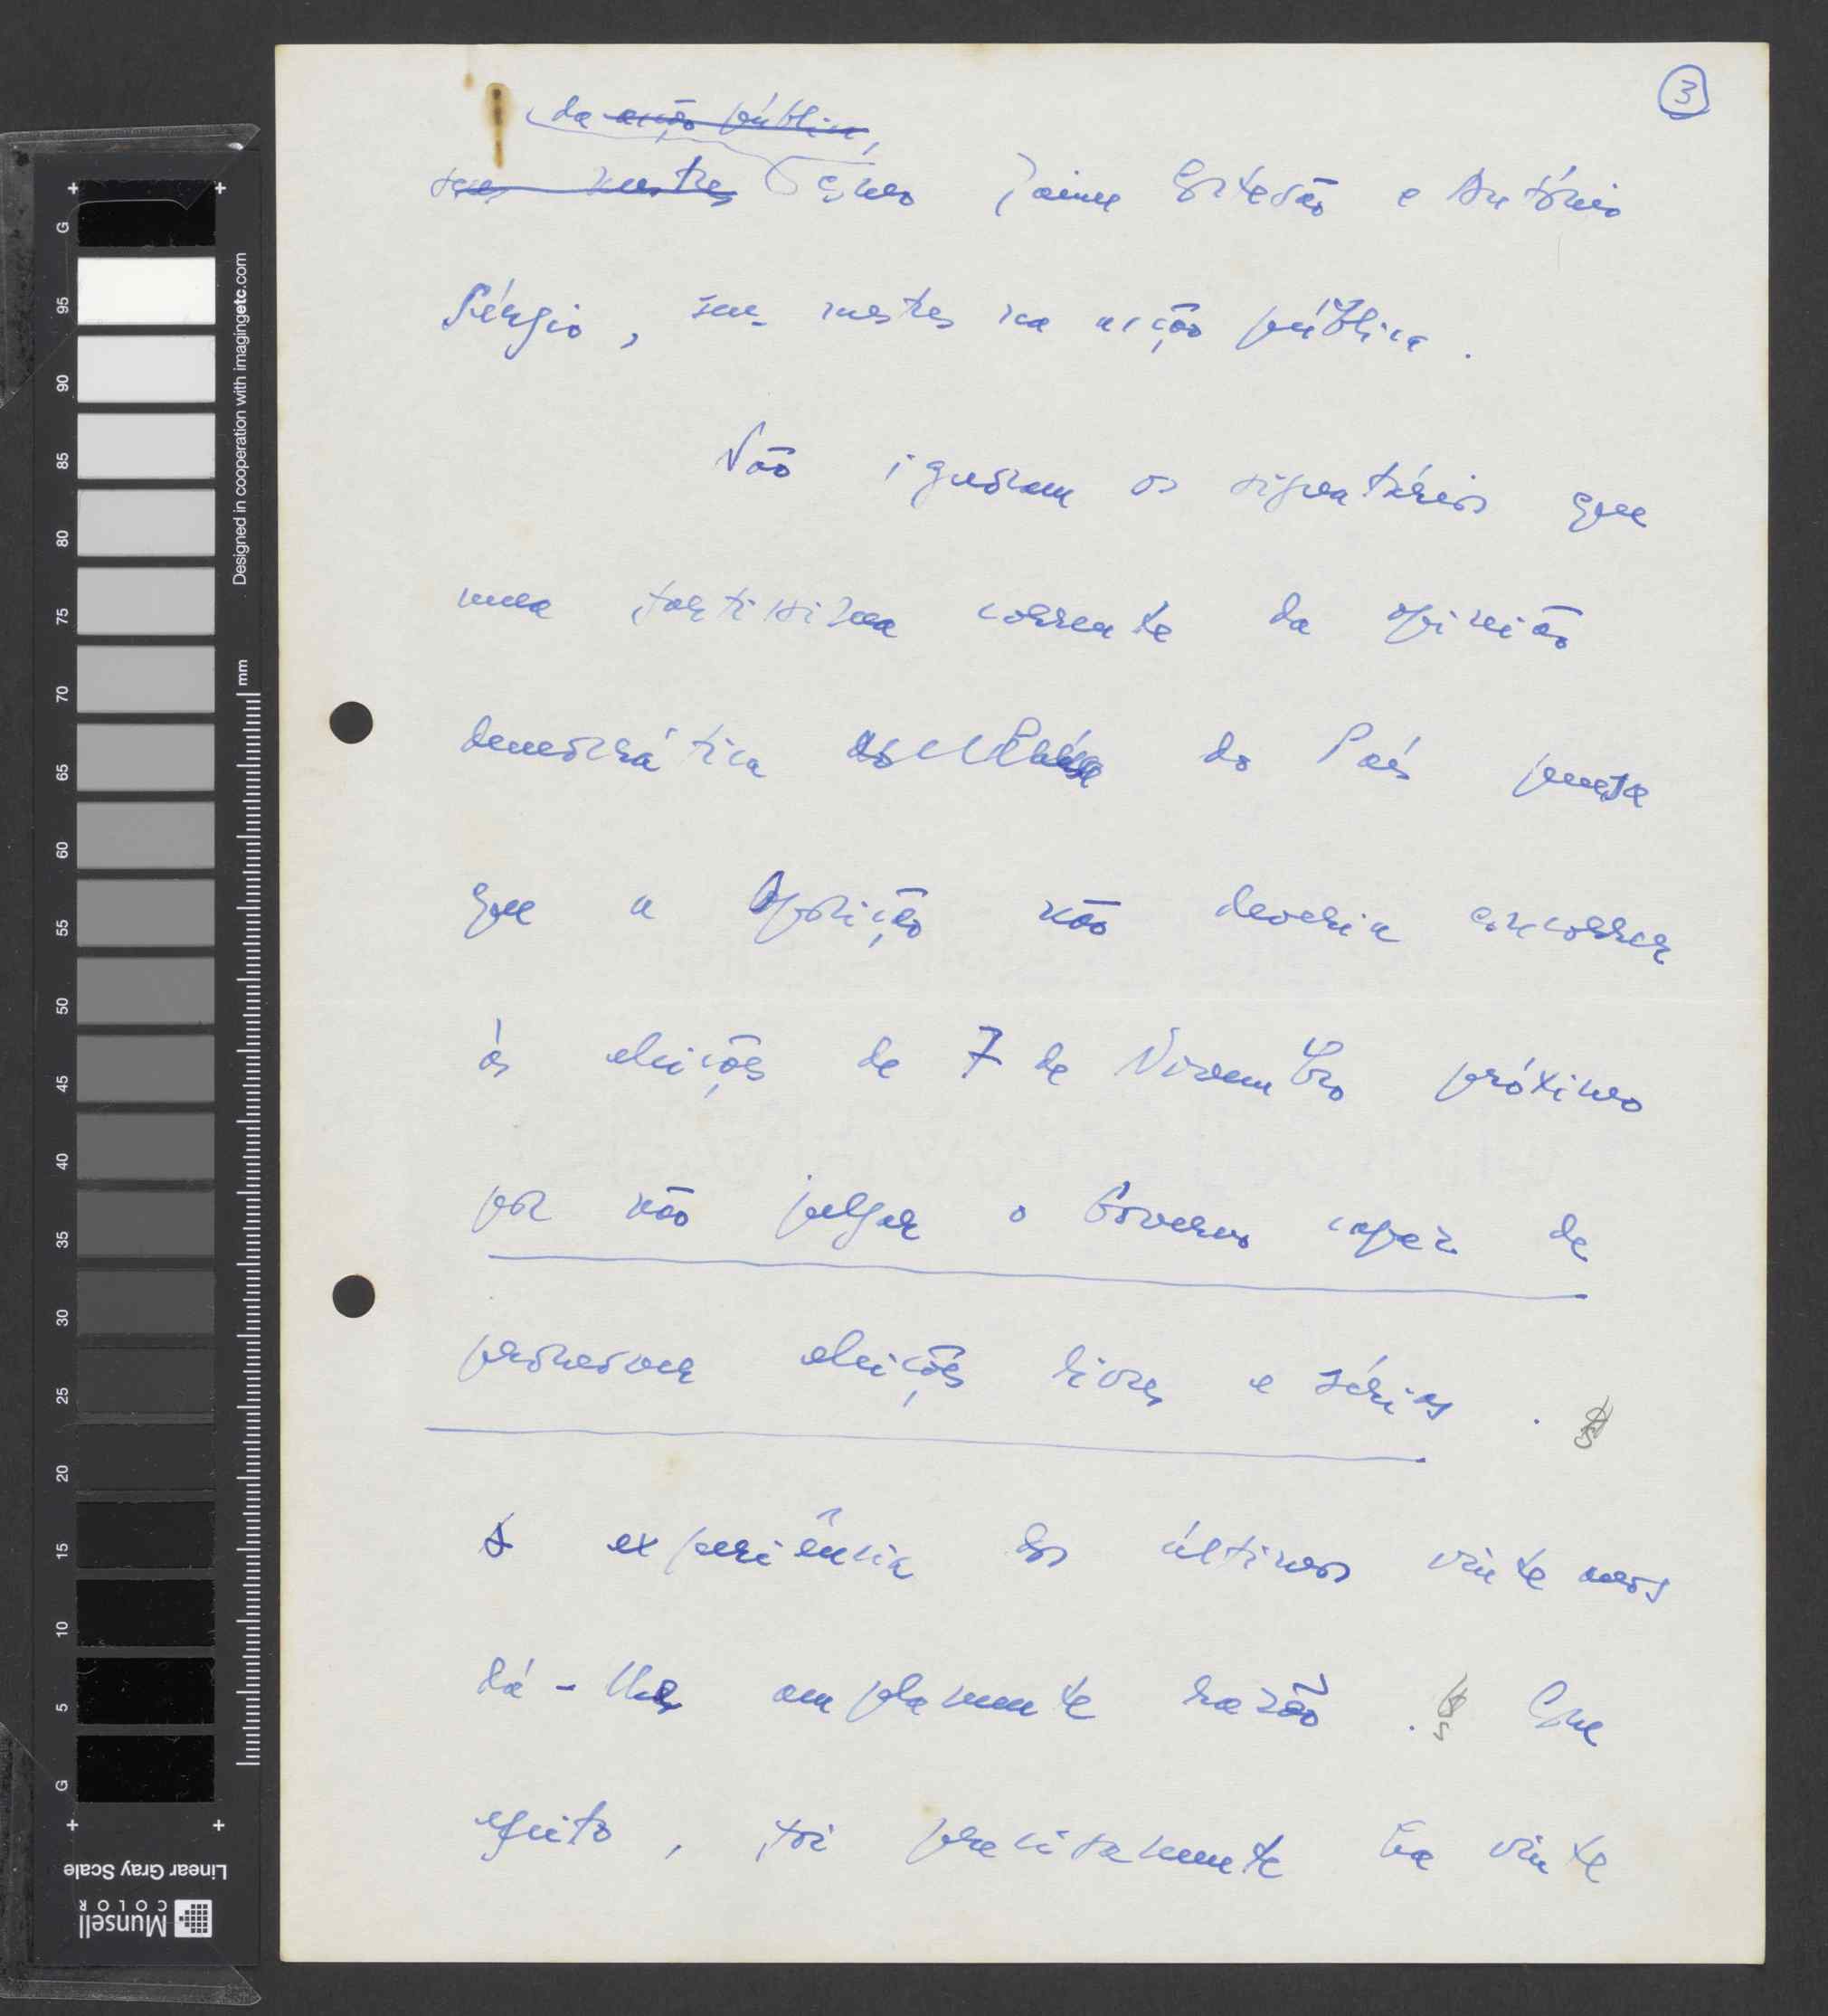 3
da acção pública,
seus mestres como Jaime Cortesão e António
Sérgio, seus mestres na acção pública.
Não ignoram os signatários que
uma fortíssima corrente da opinião
democrática do País pensa
que a Oposição não deveria concorrer
às eleições de 7 de Novembro próximo
por não julgar o Governo capaz de
promover eleições livres e sérias.
A experiência dos últimos vinte anos
dá-lhes amplamente razão. Com
efeito, foi precisamente há vinte
Designed in cooperation with imagingetc.com
mm
G 95 90 85 80 75 70 65 60 55 50 45 40 35 30 25 20 15 10 5 G
Linear Gray Scale
Munsell
COLOR